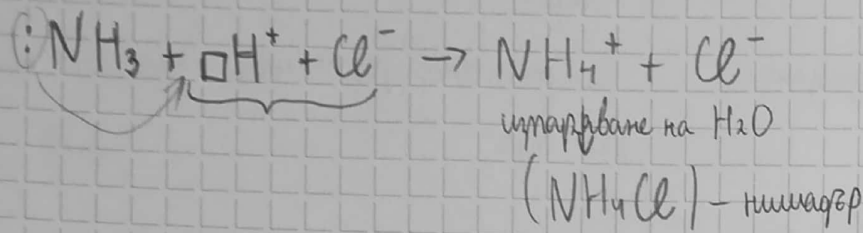 :NH₃ + □H⁺ + Cl⁻ → NH₄⁺ + Cl⁻
изпаряване на H₂O
(NH₄Cl) – нишадър